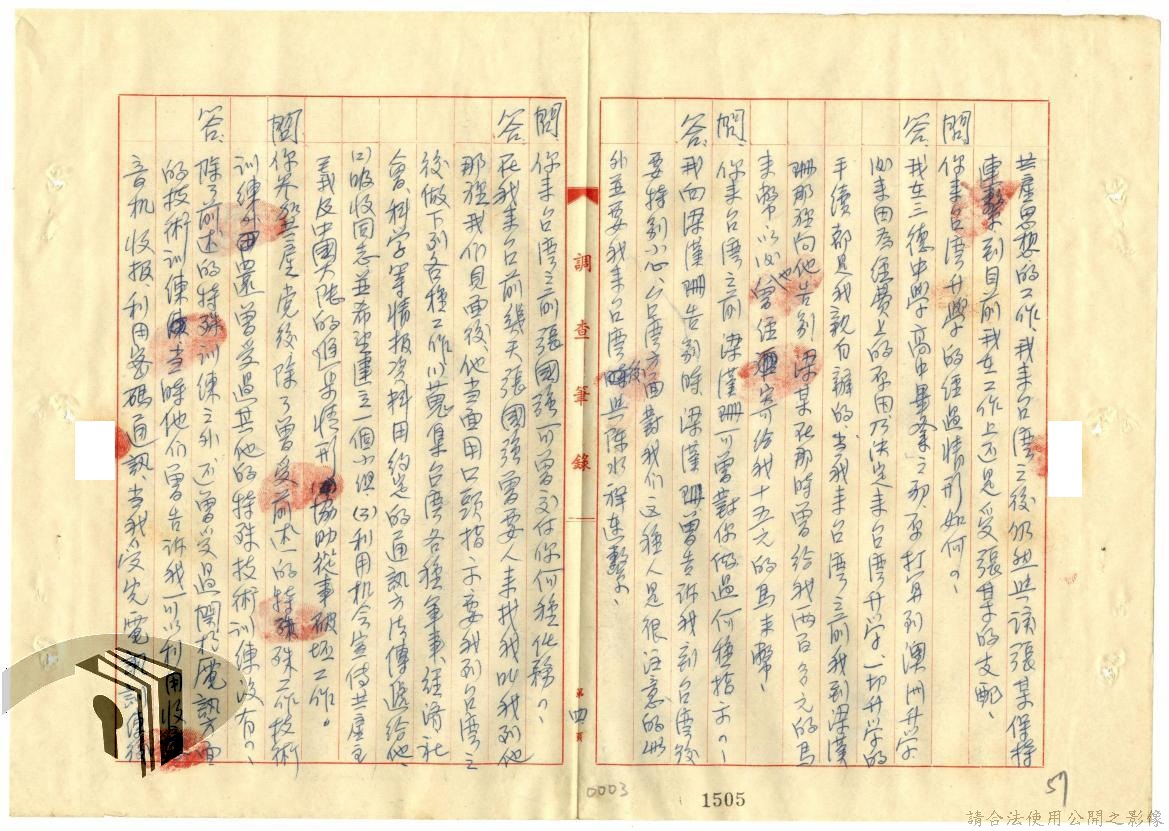 共產思想的工作我来台灣之後仍然與該張某保持
連繫到目前我在工作上还是受張某的支配、
問 你来台灣升學的經過情形如何？
答 我在三德中學高中畢業之初、原打算到澳洲升学
後来因為經費上的不用乃決定来台灣升学、一切升学的
手續都是我親自辦的、当我来台灣之前我到梁漢
珊那裡向他告別 梁某在那時曾給我两百多元的馬
来幣以後他曾經寄給我十五元的馬来幣、
問 你来台灣之前梁漢珊可曾對你做過何種指示？
答 我向梁漢珊告別時、梁漢珊曾告訴我到台灣後
要特別小心、台灣方面對我們这種人是很注意的此
外並要我来台灣後與陈水祥連繫、
調查筆錄
第四頁
問 你来台灣之前張國強可曾交付你何種任務？
答 在我来台前幾天張國強曾要人来找我叫我到他
那裡我们見面後他当面用口頭指示要我到台灣之
後做下列各種工作(1)蒐集台灣各種軍事、經済社
會、科学等情报資料用約定的通訊方法傳遞給他、
(2)吸收同志並希望建立一個小组(3)利用机会宣传共產主
義及中國大陸的進步情形協助從事破坏工作。
問 你参加共產党後除了曾受前述的特殊工作技術
訓練外還曾受過其他的特殊技術訓練没有？
答 除了前述的特殊訓練之外还曾受過関於電訊方面
的技術訓練当時他们曾告诉我可以利用收
音机收报利用密碼通訊、当我受完電訊訓練後
0003
1505
57
請合法使用公開之影像